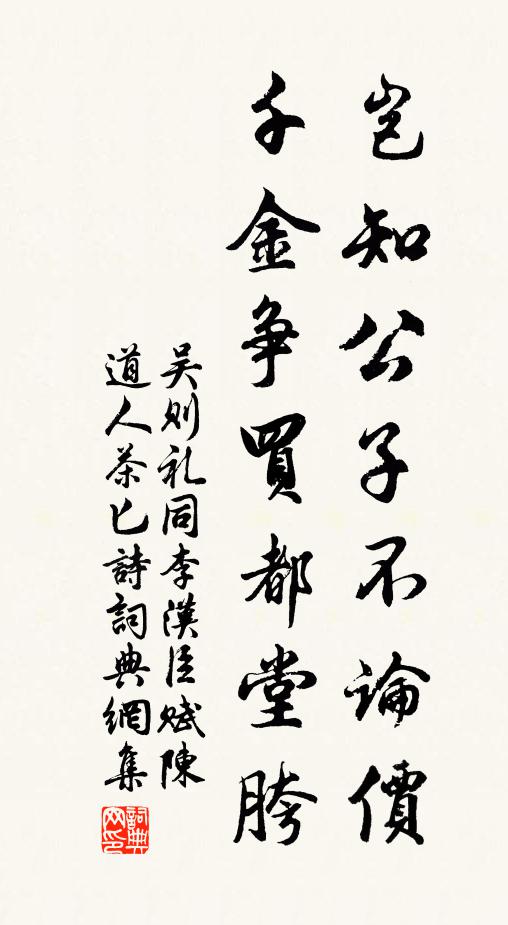 豈知公子不論價
千金爭買都堂胯
吴則礼同李漢臣賦陳
道人茶匕詩詞典網集
詞典網印